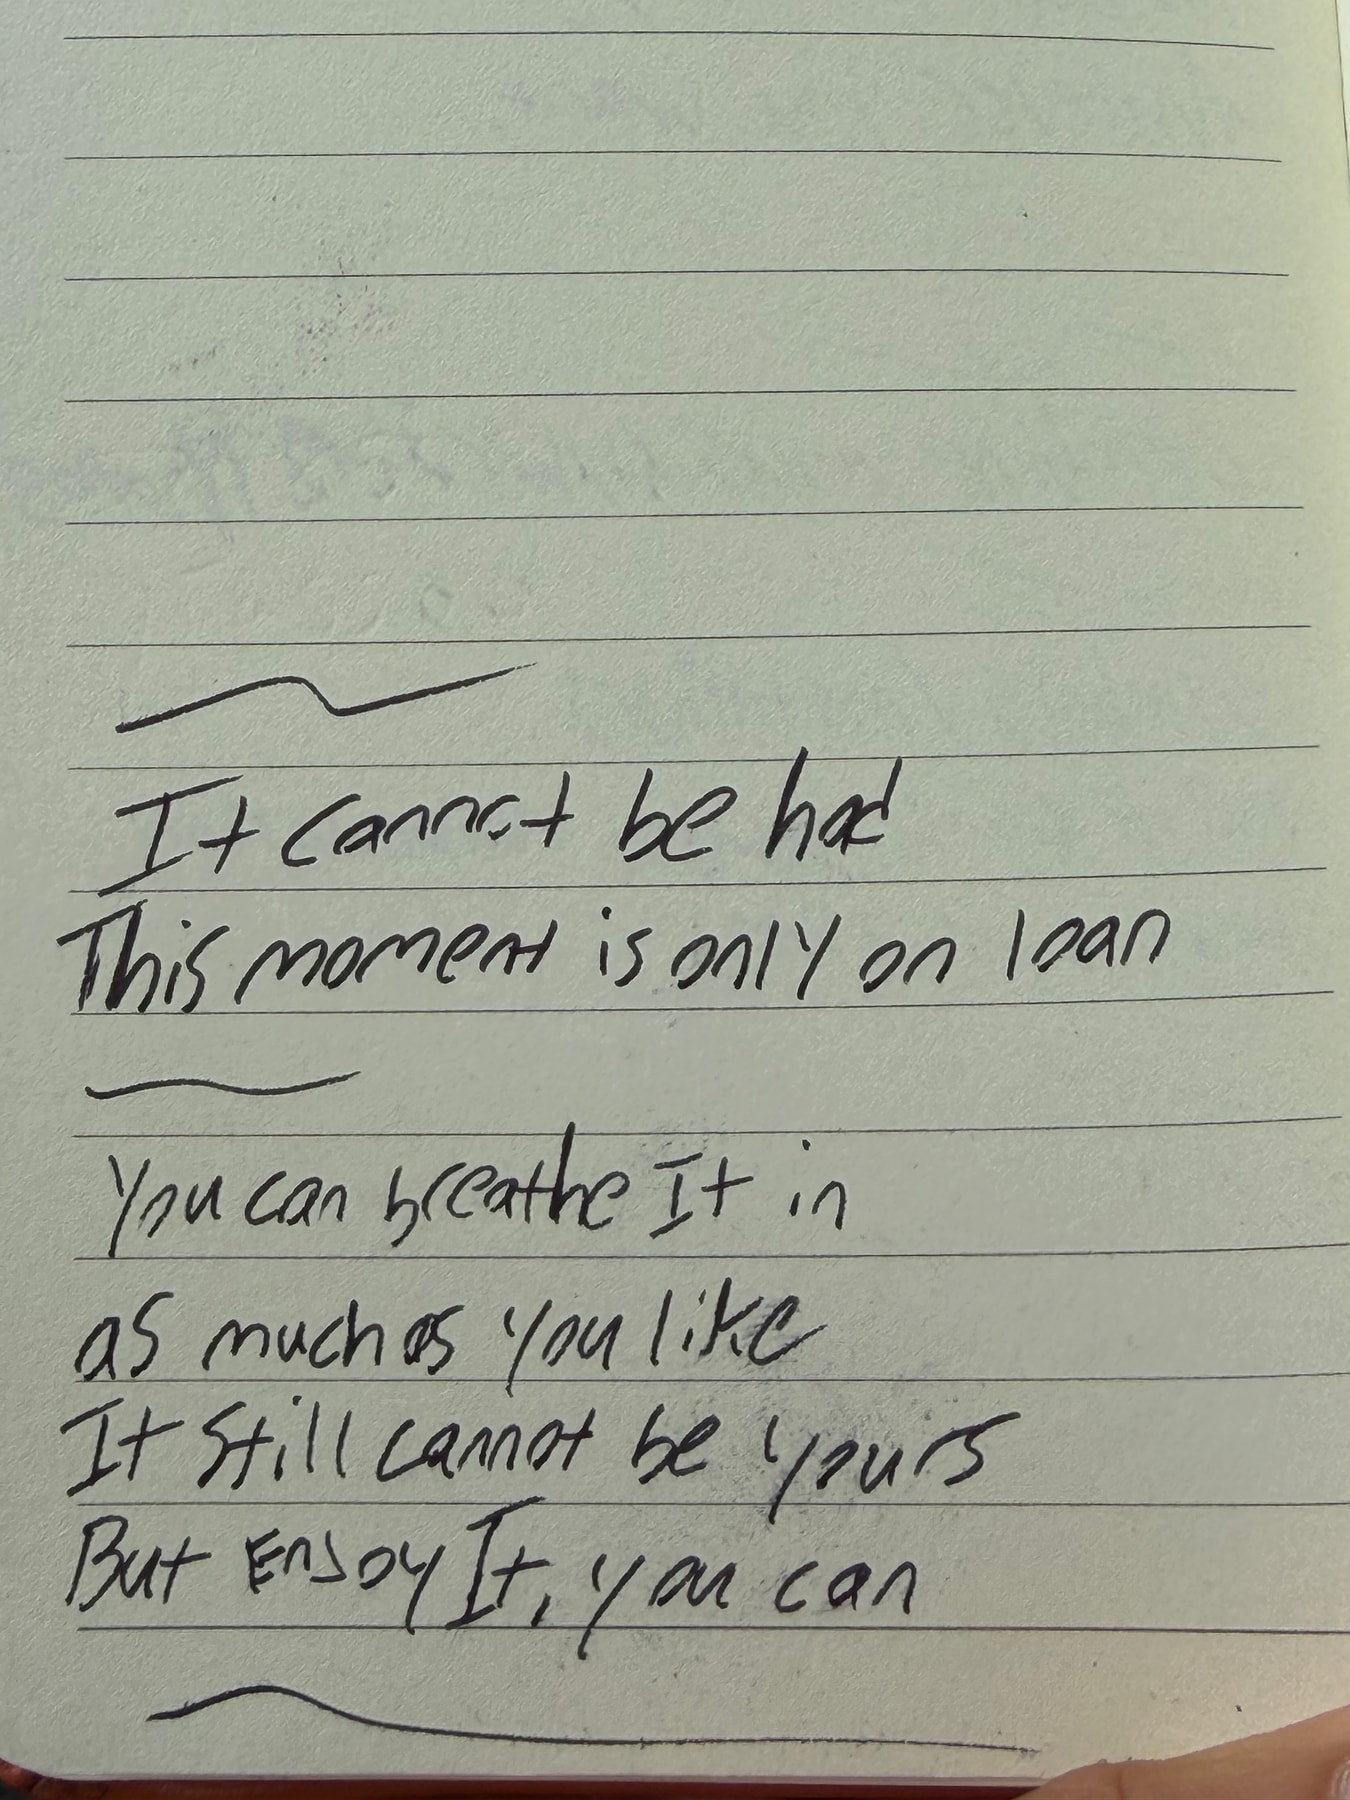 It cannot be had
This moment is only on loan
You can breathe It in
as much as you like
It still cannot be yours
But Enjoy It, you can